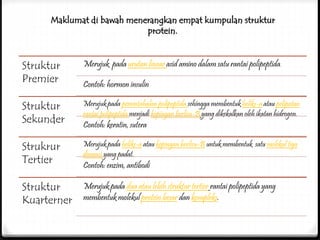 Maklumat di bawah menerangkan empat kumpulan struktur
protein.
Struktur
Premier
Merujuk pada urutan linear asid amino dalam satu rantai polipeptida
Contoh: hormon insulin
Struktur
Sekunder
Merujuk pada pemintalan polipeptida sehingga membentuk heliks-α atau palipatan
rantai polipeptida menjadi kepingan berlisu-β yang dikekalkan oleh ikatan hidrogen.
Contoh: keratin, sutera
Strukrur
Tertier
Merujuk pada heliks-α atau kepingan berlisu-β untuk membentuk satu molekul tiga
dimensi yang padat.
Contoh: enzim, antibodi
Struktur
Kuarterner
Merujuk pada dua atau lebih struktur tertier rantai polipeptida yang
membentuk molekul protein besar dan kompleks.